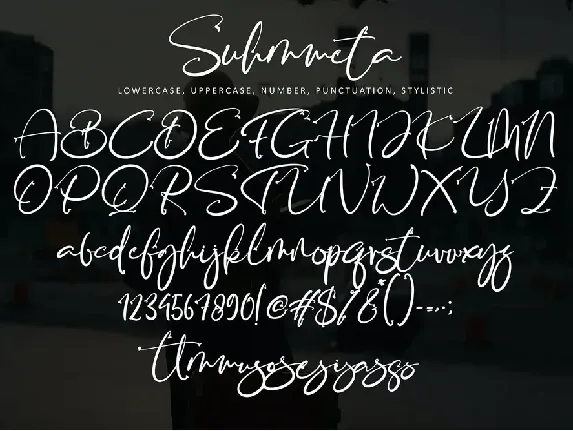 Suhmmeta
LOWERCASE, UPPERCASE, NUMBER, PUNCTUATION, STYLISTIC
ABCDEFGHIJKLMN
OPQRSTUVWXYZ
abcdefghijklmnopqrstuvwxyz
1234567890!@#$%&*()-=,.:;